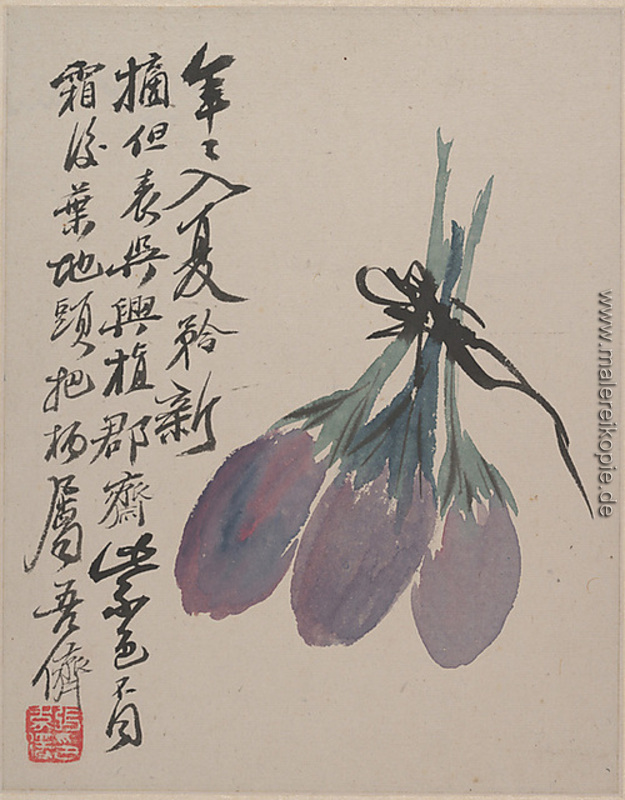 年〻入夏矜新
摘但表吳興植郡齋紫色不同
霜後葉地頭把柄屬吾儕
www.malereikopie.de